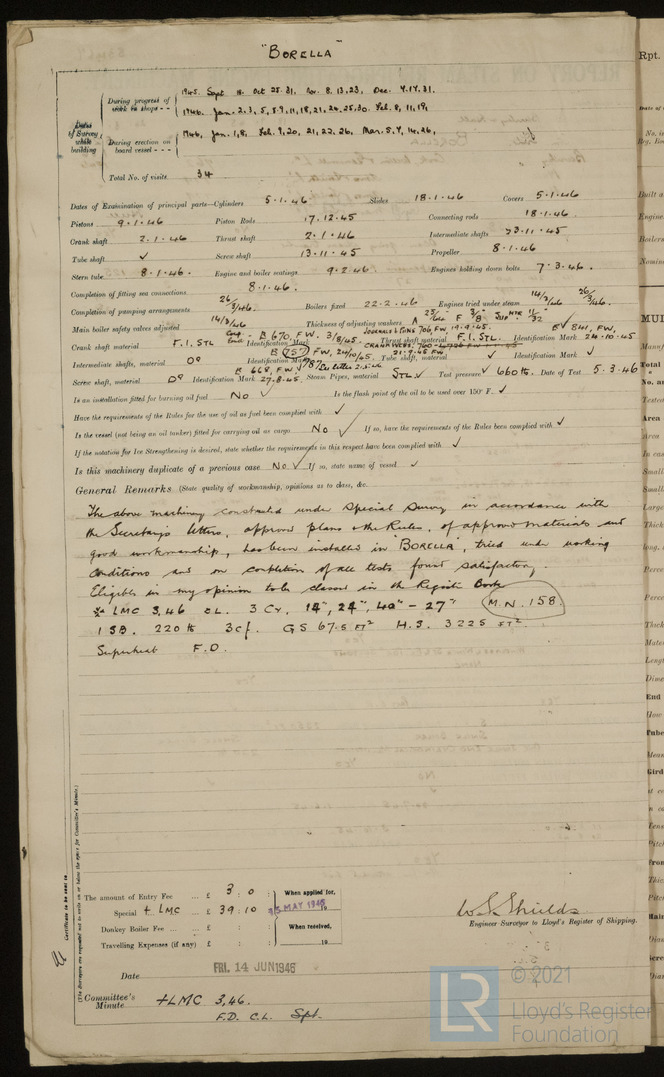 "BORELLA"
Dates of Survey while building
During progress of work in shops - - 1945. Sept 18. Oct 25.31. Nov. 8.13,23, Dec. 4.17.31.
1946. Jan. 2.3,5,8.9,11,18,21,24.25.30. Feb. 8, 11, 19,
During erection on board vessel - - - 1946, Jan. 1,8, Feb. 9,20, 21, 22, 26, Mar. 5,7, 14,26,
Total No. of visits 34
Dates of Examination of principal parts—Cylinders 5.1.46 Slides 18.1.46 Covers 5.1.46
Pistons 9.1.46 Piston Rods 17.12.45 Connecting rods 18.1.46
Crank shaft 2.1.46 Thrust shaft 2.1.46 Intermediate shafts 23.11.45
Tube shaft ✓ Screw shaft 13.11.45 Propeller 8.1.46
Stern tube 8.1.46. Engine and boiler seatings 9.2.46 Engines holding down bolts 7.3.46.
Completion of fitting sea connections 8.1.46.
Completion of pumping arrangements 26/3/46. Boilers fixed 22.2.46 Engines tried under steam 14/3/46 26/3/46.
Main boiler safety valves adjusted 14/3/46 Thickness of adjusting washers A 23/64" F 3/8" SUPHTR 11/32"
Crank shaft material F.I. STL Identification Mark B 670, F.W. 3/8/45. JOURNALS & PINS 706, FW. 19.9.45. Thrust shaft material F.I. STL. Identification Mark 841, FW, 24.10.45
Intermediate shafts, material Do Identification Marks 757 FW, 24/10/45 Tube shaft, material ✓ Identification Mark ✓
Screw shaft, material Do Identification Mark B 668, F.W. 27.8.45. Steam Pipes, material STL ✓ Test pressure 660 lb. Date of Test 5.3.46
Is an installation fitted for burning oil fuel No ✓ Is the flash point of the oil to be used over 150° F. ✓
Have the requirements of the Rules for the use of oil as fuel been complied with ✓
Is the vessel (not being an oil tanker) fitted for carrying oil as cargo No ✓ If so, have the requirements of the Rules been complied with ✓
If the notation for Ice Strengthening is desired, state whether the requirements in this respect have been complied with ✓
Is this machinery duplicate of a previous case No ✓ If so, state name of vessel ✓
General Remarks (State quality of workmanship, opinions as to class, &c.
The above machinery constructed under Special Survey in accordance with
the Secretary's letters, approved plans & the Rules, of approved materials and
good workmanship, has been installed in "BORELLA", tried under working
conditions and on completion of all tests found satisfactory.
Eligible in my opinion to be classed in the Register Book
LMC 3,46 CL. 3 Cy, 14", 24", 40" - 27" M.N. 158.
1 SB. 220 lb 3cf. GS 67.5 FT² H.S. 3225 FT².
Superheat F.D.
Certificate to be sent to
(The Surveyors are requested not to write on or below the space for Committee's Minute.)
The amount of Entry Fee ... £ 3 : 0 : When applied for,
Special + LMC ... £ 39 : 10 MAY 1946
Donkey Boiler Fee ... £ : : When received,
Travelling Expenses (if any) £ : : 19
W. S. Shields
Engineer Surveyor to Lloyd's Register of Shipping.
Date FRI. 14 JUN 1946
Committee's Minute +LMC 3,46.
F.D. C.L. Spt.
Rpt.
LR
© 2021
Lloyd's Register
Foundation